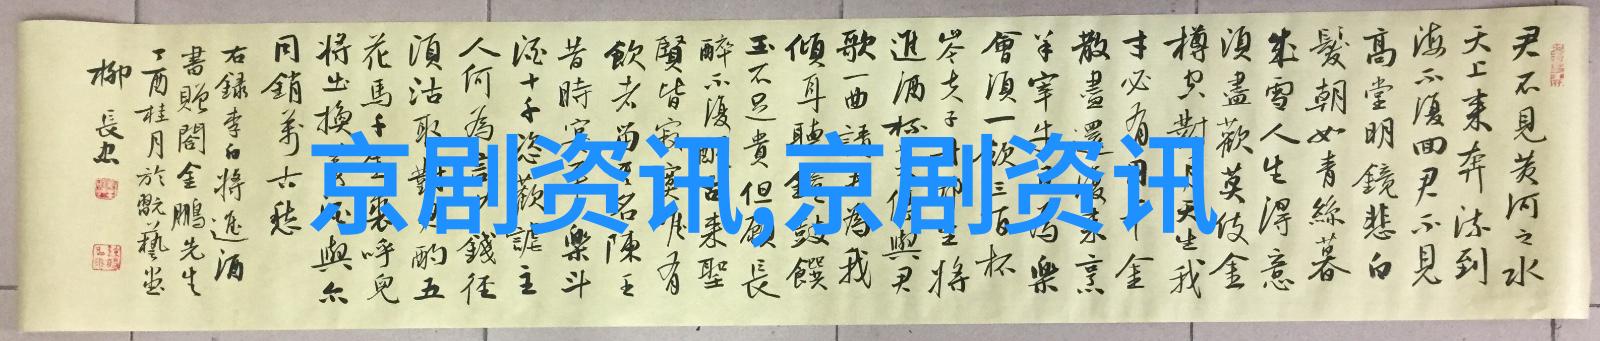 君不見黃河之水
天上來奔流到
海不復回君不見
高堂明鏡悲白
髮朝如青絲暮
成雪人生得意
須盡歡莫使金
樽空對月天生我
才必有用千金
散盡還復來烹
羊宰牛且為樂
會須一飲三百杯
岑夫子丹邱生將
進酒杯莫停與君
歌一曲請君為我
傾耳聽鐘鼓饌
玉不足貴但願長
醉不復醒古來聖
賢皆寂寞唯有
飲者留其名陳王
昔時宴平樂斗
酒十千恣歡謔主
人何為言少錢徑
須沽取對君酌五
花馬千金裘呼兒
將出換美酒與尔
同銷萬古愁
右録李白將進酒
書贈閻金鵬先生
丁酉桂月於翫藝堂
柳長忠
京剧资讯,京剧资讯